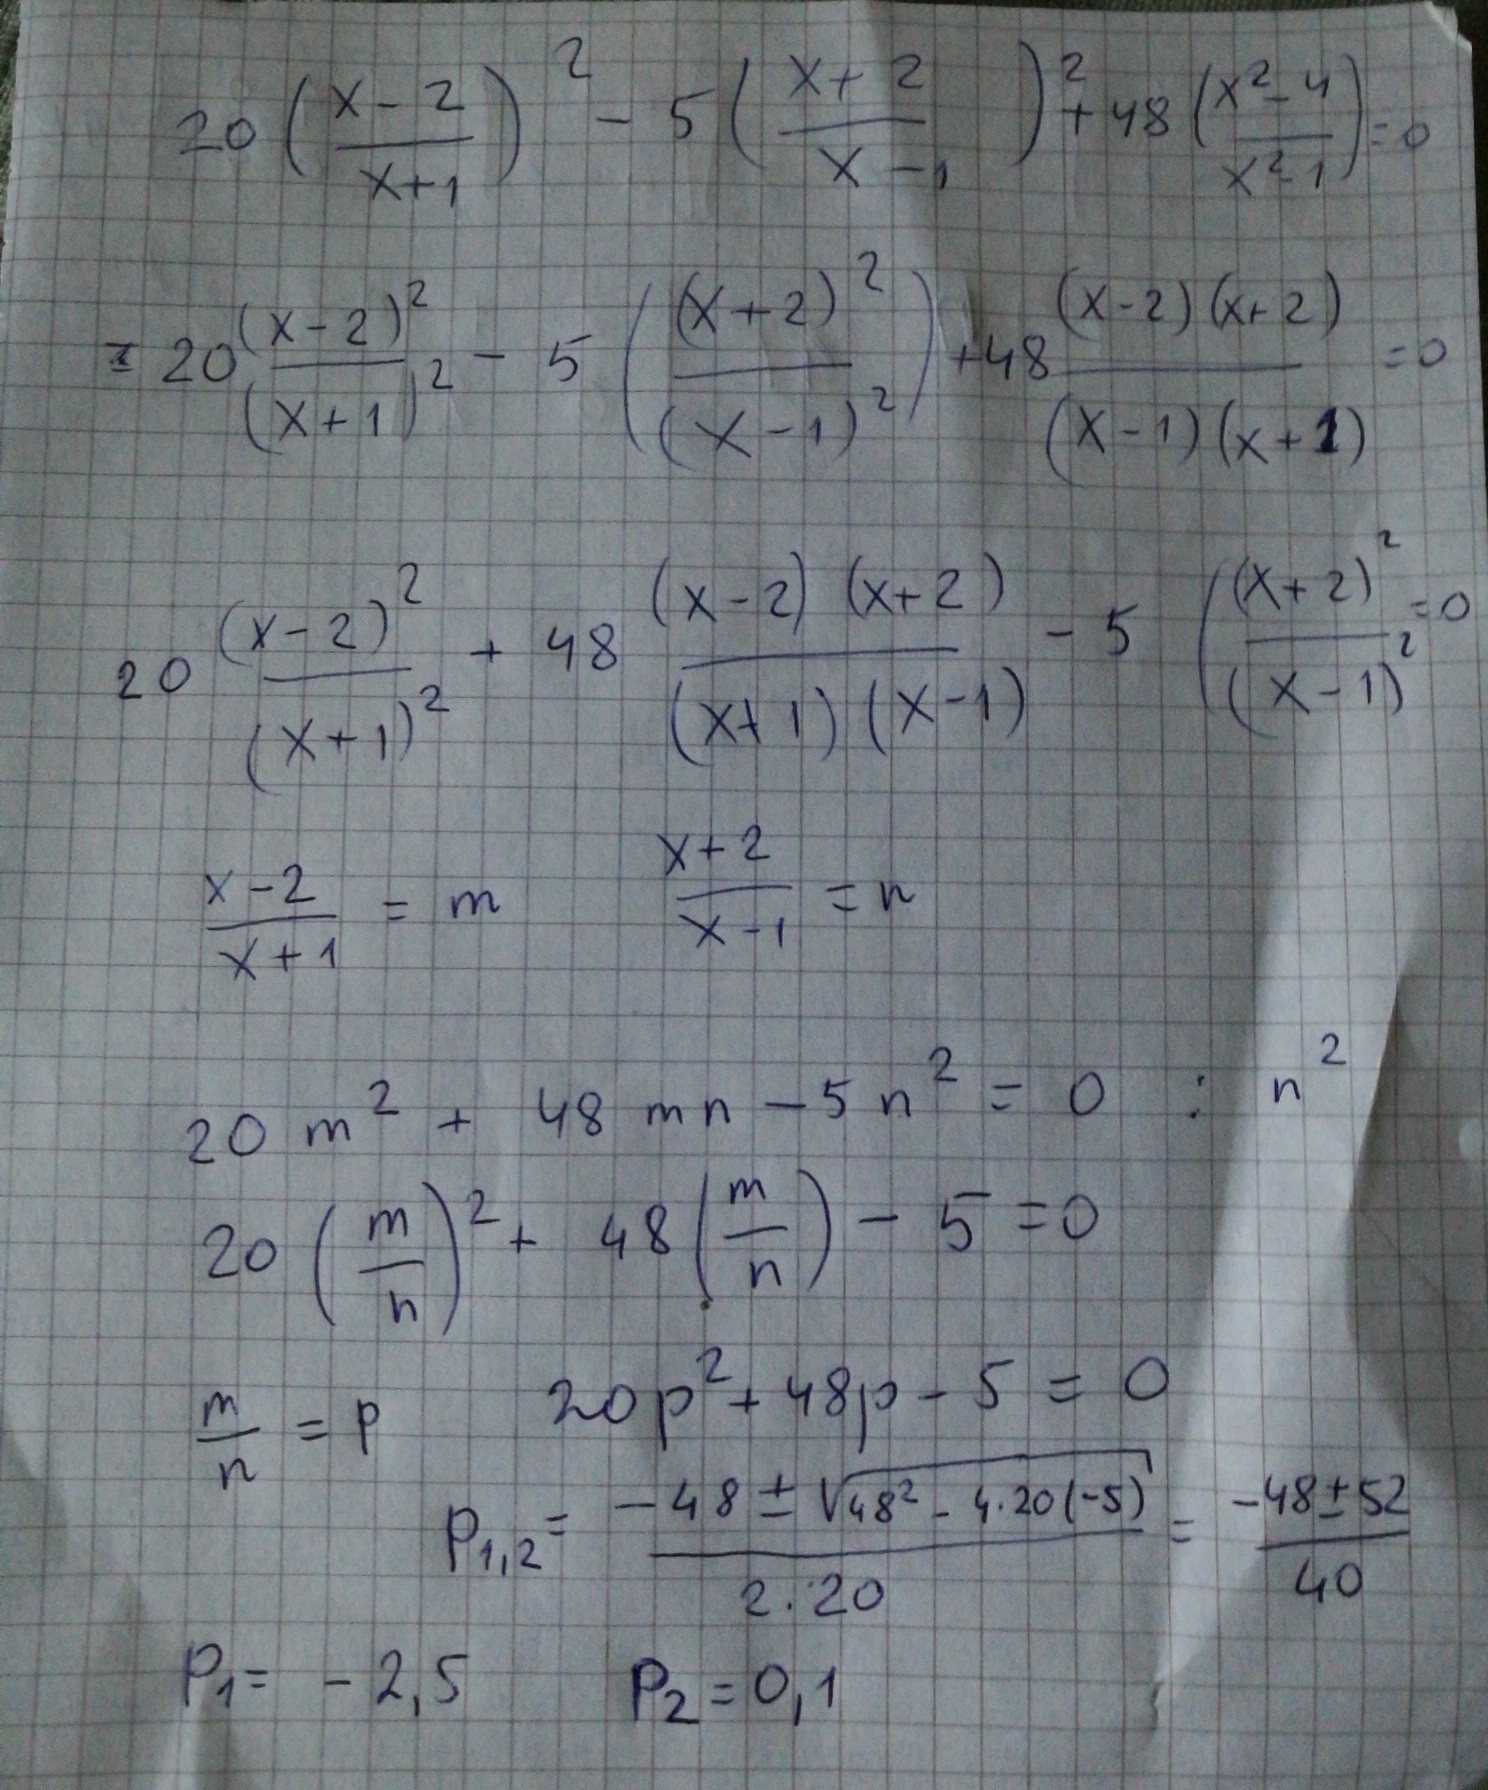 20 ((x-2)/(x+1))² - 5((x+2)/(x-1))² + 48 ((x²-4)/(x²-1)) = 0
= 20 (x-2)²/(x+1)² - 5 ((x+2)²/(x-1)²) + 48 (x-2)(x+2)/(x-1)(x+1) = 0
20 (x-2)²/(x+1)² + 48 (x-2)(x+2)/(x+1)(x-1) - 5 ((x+2)²/(x-1)² = 0
(x-2)/(x+1) = m (x+2)/(x-1) = n
20 m² + 48 mn - 5 n² = 0 : n²
20 (m/n)² + 48 (m/n) - 5 = 0
m/n = p 20p² + 48p - 5 = 0
P₁,₂ = (-48 ± √(48² - 4·20(-5)))/(2·20) = (-48 ± 52)/40
P₁ = -2,5 P₂ = 0,1